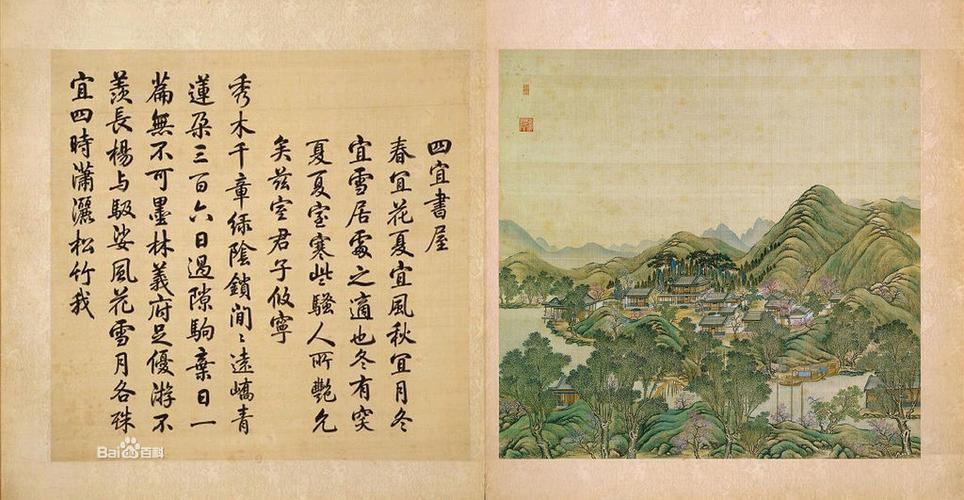 四宜書屋
春宜花夏宜風秋宜月冬
宜雪居處之適也冬有突
夏夏室寒些騷人所艷允
矣茲室君子攸寧
秀木千章綠陰鎖間〻遠嶠青
蓮朵三百六日過隙駒棄日一
篇無不可墨林義府足優游不
羨長楊与馺娑風花雪月各殊
宜四時瀟灑松竹我
Bai百科